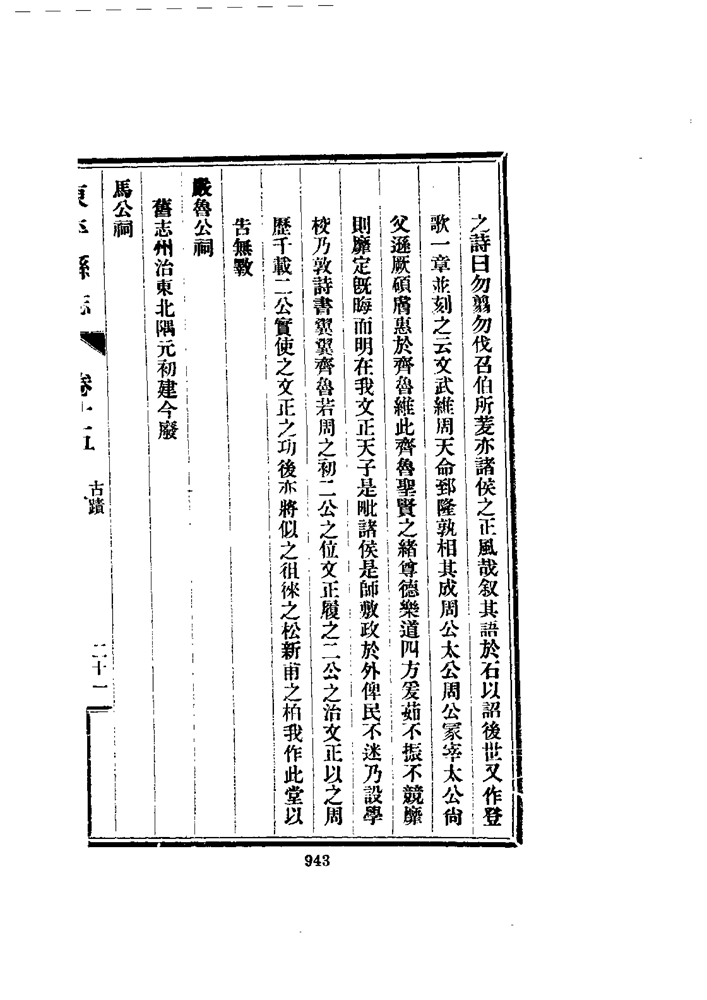 之詩曰勿翦勿伐召伯所茇亦諸侯之正風哉叙其語於石以詔後世又作登
歌一章並刻之云文武維周天命郅隆孰相其成周公太公周公冢宰太公尙
父遜厥碩膚惠於齊魯維此齊魯聖賢之緒尊德樂道四方爰茹不振不競靡
則靡定旣晦而明在我文正天子是毗諸侯是師敷政於外俾民不迷乃設學
校乃敦詩書翼翼齊魯若周之初二公之位文正履之二公之治文正以之周
歷千載二公實使之文正之功後亦將似之徂徠之松新甫之柏我作此堂以
告無斁
嚴魯公祠
舊志州治東北隅元初建今廢
馬公祠
東平縣志 卷十五 古蹟 二十一
943